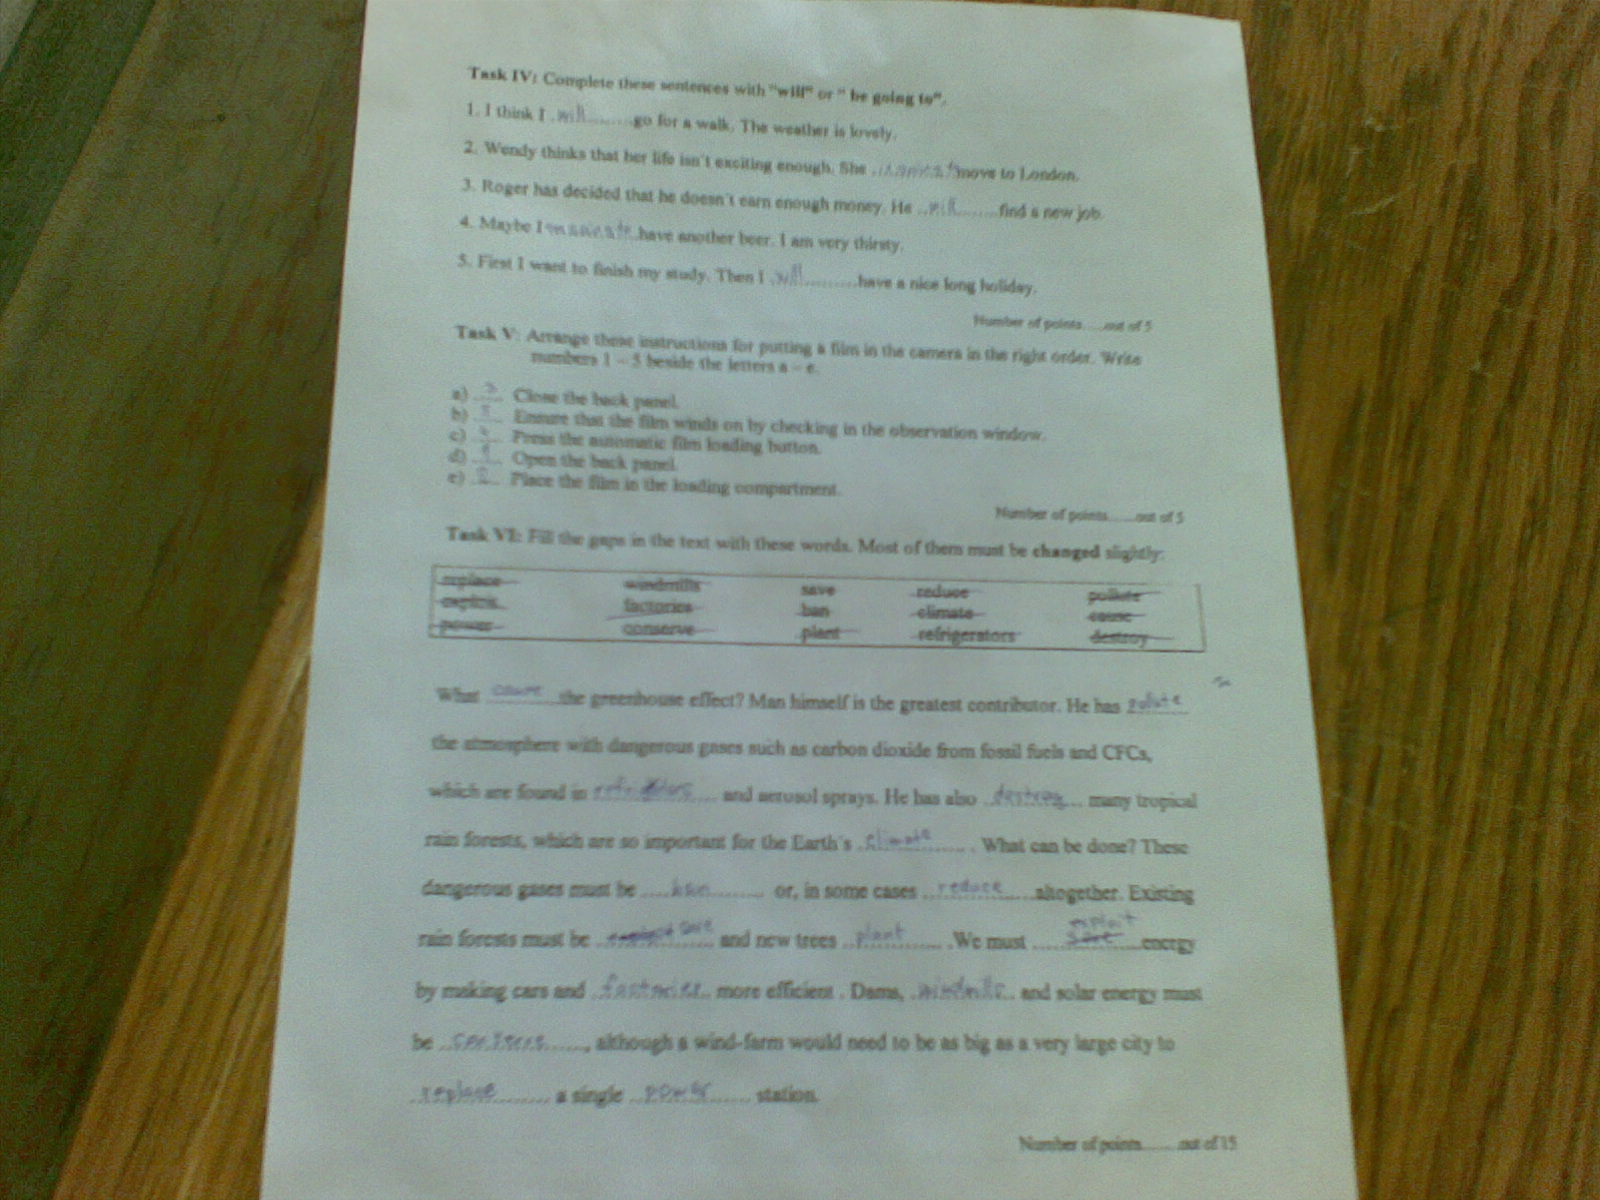 Task IV: Complete these sentences with "will" or " be going to".
1. I think I .will.........go for a walk. The weather is lovely.
2. Wendy thinks that her life isn't exciting enough. She move to London.
3. Roger has decided that he doesn't earn enough money. He ..will.........find a new job.
4. Maybe I have another beer. I am very thirsty.
5. First I want to finish my study. Then I .will...........have a nice long holiday.
Number of points......out of 5
Task V: Arrange these instructions for putting a film in the camera in the right order. Write
numbers 1 – 5 beside the letters a – e.
a) Close the back panel.
b) Ensure that the film winds on by checking in the observation window.
c) Press the automatic film loading button.
d) Open the back panel.
e) Place the film in the loading compartment.
Number of points.......out of 5
Task VI: Fill the gaps in the text with these words. Most of them must be changed slightly:
replace windmills save reduce pollute
exploit factories ban climate cause
power conserve plant refrigerators destroy
What cause the greenhouse effect? Man himself is the greatest contributor. He has polute
the atmosphere with dangerous gases such as carbon dioxide from fossil fuels and CFCs,
which are found in and aerosol sprays. He has also ..destroy.... many tropical
rain forests, which are so important for the Earth's .climate........ . What can be done? These
dangerous gases must be .....ban.......... or, in some cases ..reduce......altogether. Existing
rain forests must be save and new trees ..plant....... .We must exploit save energy
by making cars and ..factories.. more efficient . Dams, ..windmills.. and solar energy must
be , although a wind-farm would need to be as big as a very large city to
..replace.......... a single ..power....... station.
Number of points........out of 15